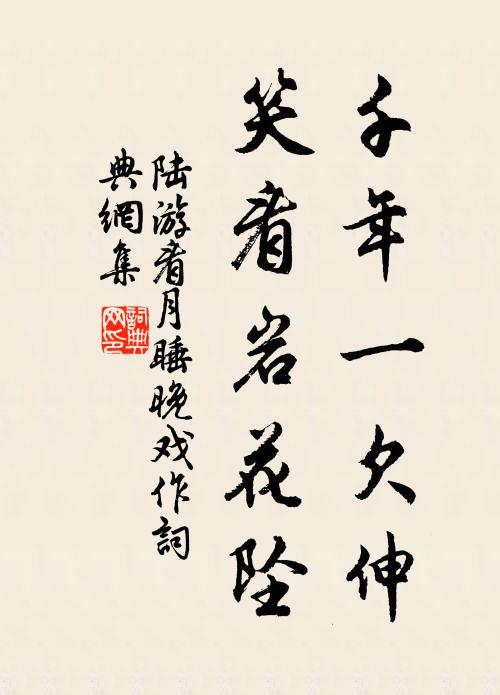 千年一欠伸
笑看岩花坠
陆游看月睡晚戏作詞
典網集
詞典网印